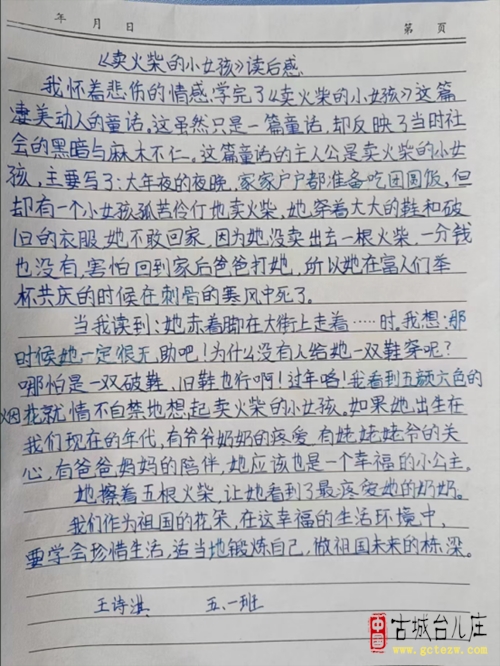 年 月 日 第 页
《卖火柴的小女孩》读后感
我怀着悲伤的情感学完了《卖火柴的小女孩》这篇
凄美动人的童话。这虽然只是一篇童话,却反映了当时社
会的黑暗与麻木不仁。这篇童话的主人公是卖火柴的小女
孩,主要写了:大年夜的夜晚,家家户户都准备吃团圆饭,但
却有一个小女孩孤苦伶仃地卖火柴,她穿着大大的鞋和破
旧的衣服,她不敢回家,因为她没卖出去一根火柴,一分钱
也没有,害怕回到家后爸爸打她,所以她在富人们举
杯共庆的时候在刺骨的寒风中死了。
当我读到:她赤着脚在大街上走着……时。我想:那
时候她一定很无助吧!为什么没有人给她一双鞋穿呢?
哪怕是一双破鞋、旧鞋也行啊!过年咯!我看到五颜六色的
烟花就情不自禁地想起卖火柴的小女孩。如果她出生在
我们现在的年代,有爷爷奶奶的疼爱,有姥姥姥爷的关
心,有爸爸妈妈的陪伴,她应该也是一个幸福的小公主。
她擦着五根火柴,让她看到了最疼爱她的奶奶。
我们作为祖国的花朵,在这幸福的生活环境中,
要学会珍惜生活,适当地锻炼自己,做祖国未来的栋梁。
王诗淇 五.一班
中国 古城台儿庄
www.gctezw.com